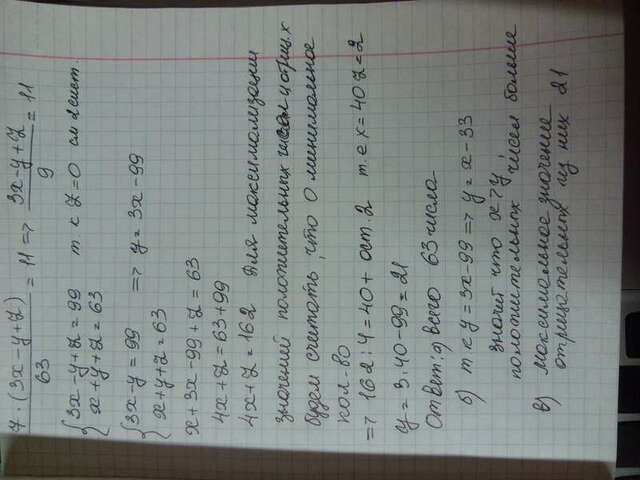 7·(3x-y+z)/63 = 11 => (3x-y+z)/9 = 11
{3x-y+z=99 т к z=0 см
{x+y+z=63
{3x-y=99 => y=3x-99
{x+y+z=63
x+3x-99+z=63
4x+z=63+99
4x+z=162 для максимализации
значений положительных чисел и отриц. х
будем считать, что 0 минимальное
кол-во
=> 162:4=40+ ост.2 т.е x=40 z=2
y=3·40-99=21
Ответ: а) всего 63 числа
б) т к y=3x-99 => y=x-33
значит что x>y,
положительных чисел больше
в) максимальное значение
отрицательных из них 21